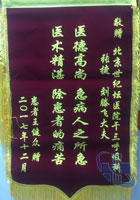 敬赠 北京世纪坛医院干三呼吸科
张捷 刘腾飞大夫
医德高尚 急病人之所急
医术精湛 除患者的痛苦
患者王健众 赠
二〇一七年十二月